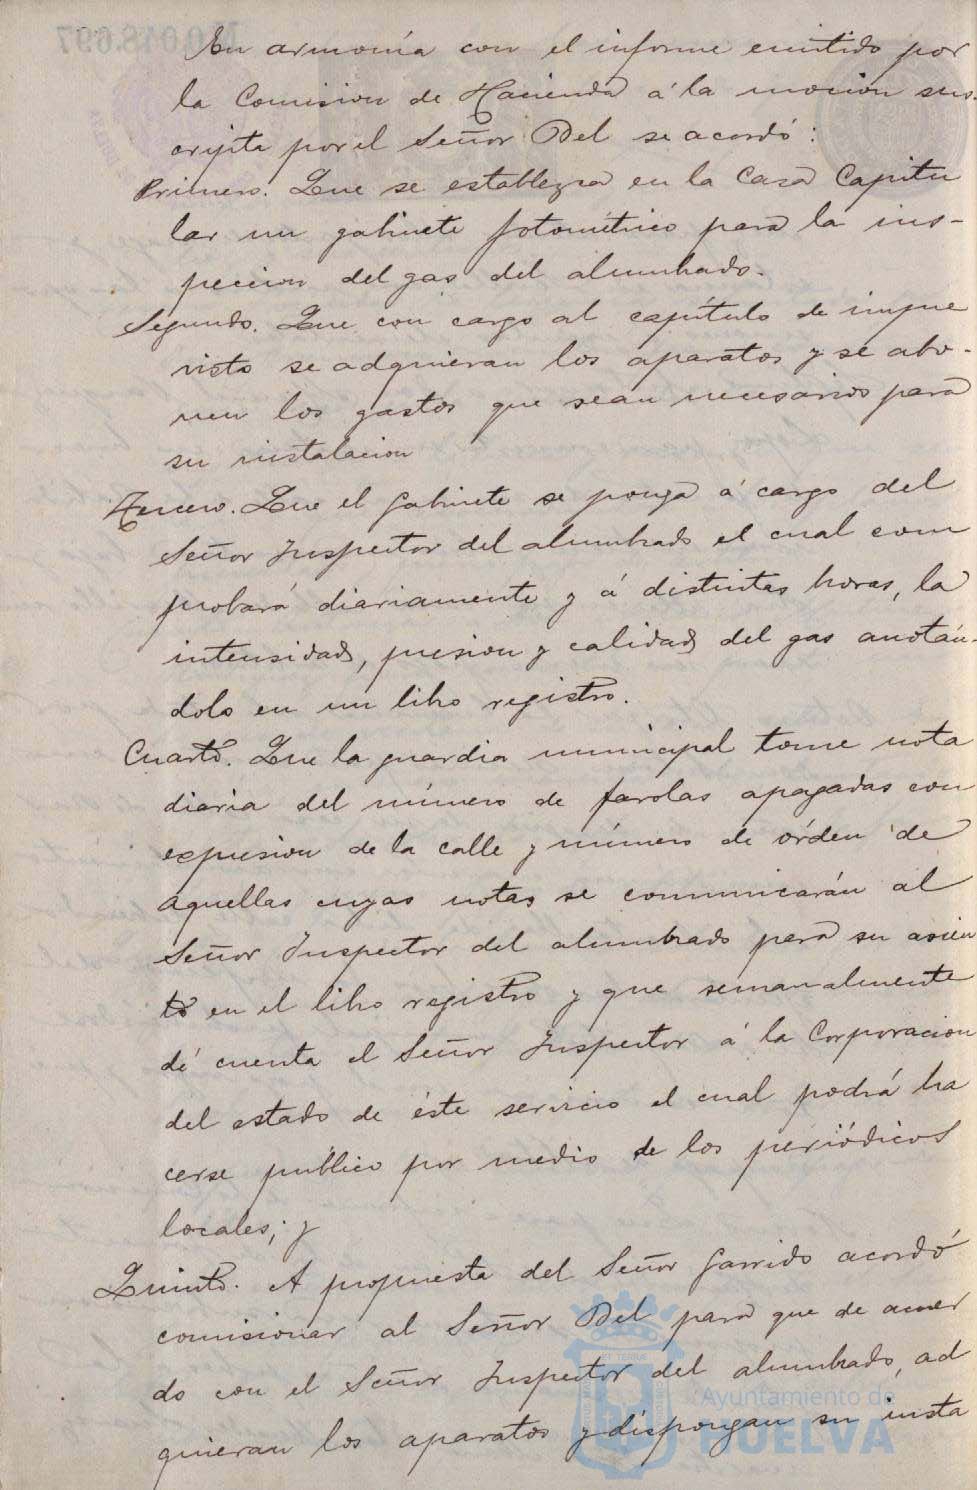 N0.048.697
En armonía con el informe emitido por
la Comision de Hacienda á la mocion sus-
cripta por el Señor Del se acordó:
Primero. Que se establezca en la Casa Capitu
lar un gabinete fotométrico para la ins-
peccion del gas del alumbrado.
Segundo. Que con cargo al capítulo de impre
visto se adquieran los aparatos y se abo-
nen los gastos que sean necesarios para
su instalacion
Tercero. Que el Gabinete se ponga á cargo del
Señor Inspector del alumbrado el cual com
probará diariamente y á distintas horas, la
intensidad, presion y calidad del gas anotán-
dolo en un libro registro.
Cuarto. Que la guardia municipal tome nota
diaria del número de farolas apagadas con
expresion de la calle y número de órden de
aquellas cuyas notas se comunicarán al
Señor Inspector del alumbrado para su asien
to en el libro registro y que semanalmente
dé cuenta el Señor Inspector á la Corporacion
del estado de éste servicio el cual podrá ha
cerse público por medio de los periódicos
locales; y
Quinto. A propuesta del Señor Garrido acordó
comisionar al Señor Del para que de acuer
do con el Señor Inspector del alumbrado, ad
quieran los aparatos y dispongan su insta
Ayuntamiento de
HUELVA